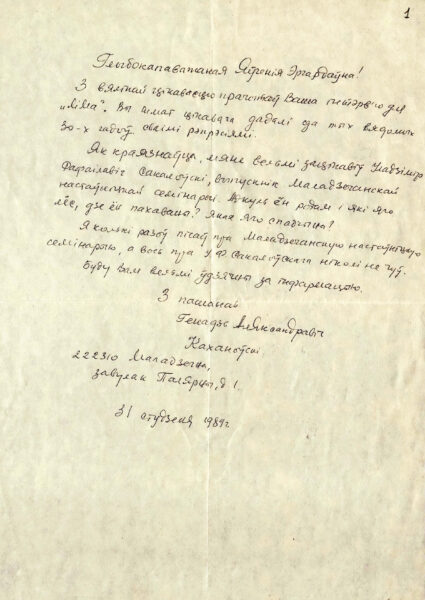 1
Глыбокапаважаная Яўгенія Эргардаўна!
З вялікай цікавасцю прачытаў Ваша інтэрв'ю для
„ЛіМа“. Вы шмат цікавага дадалі да тых вядомых
30-х гадоў сваімі рэпрэсіямі.
Як краязнаўца, мяне вельмі зацікавіў Уладзімір
Рафаілавіч Сакалоўскі, выпускнік Маладзечанскай
настаўніцкай семінарыі. Адкуль ён родам і які яго
лёс, дзе ён пахаваны? Якая яго спадчына?
Я колькі разоў пісаў пра Маладзечанскую настаўніцкую
семінарыю, а вось пра У. Р. Сакалоўскага ніколі не чуў.
Буду Вам вельмі ўдзячны за інфармацыю.
З пашанай
Генадзь Аляксандравіч
Каханоўскі
222310 Маладзечна,
завулак Палярны, д 1.
31 студзеня 1989г.